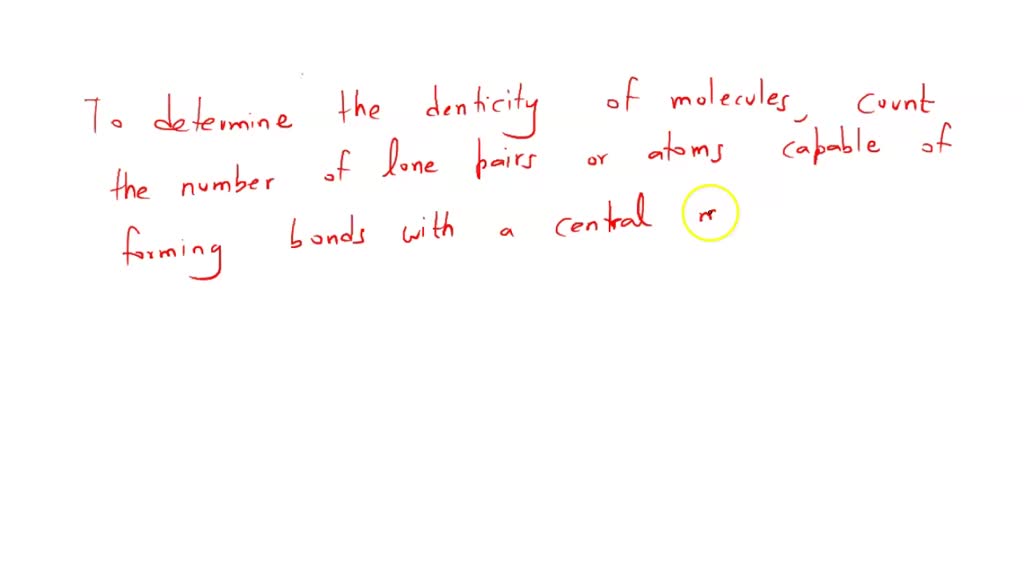 To determine the denticity of molecules, count
the number of lone pairs or atoms capable of
forming bonds with a central m